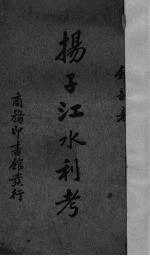 揚子江水利考
商務印書館發行